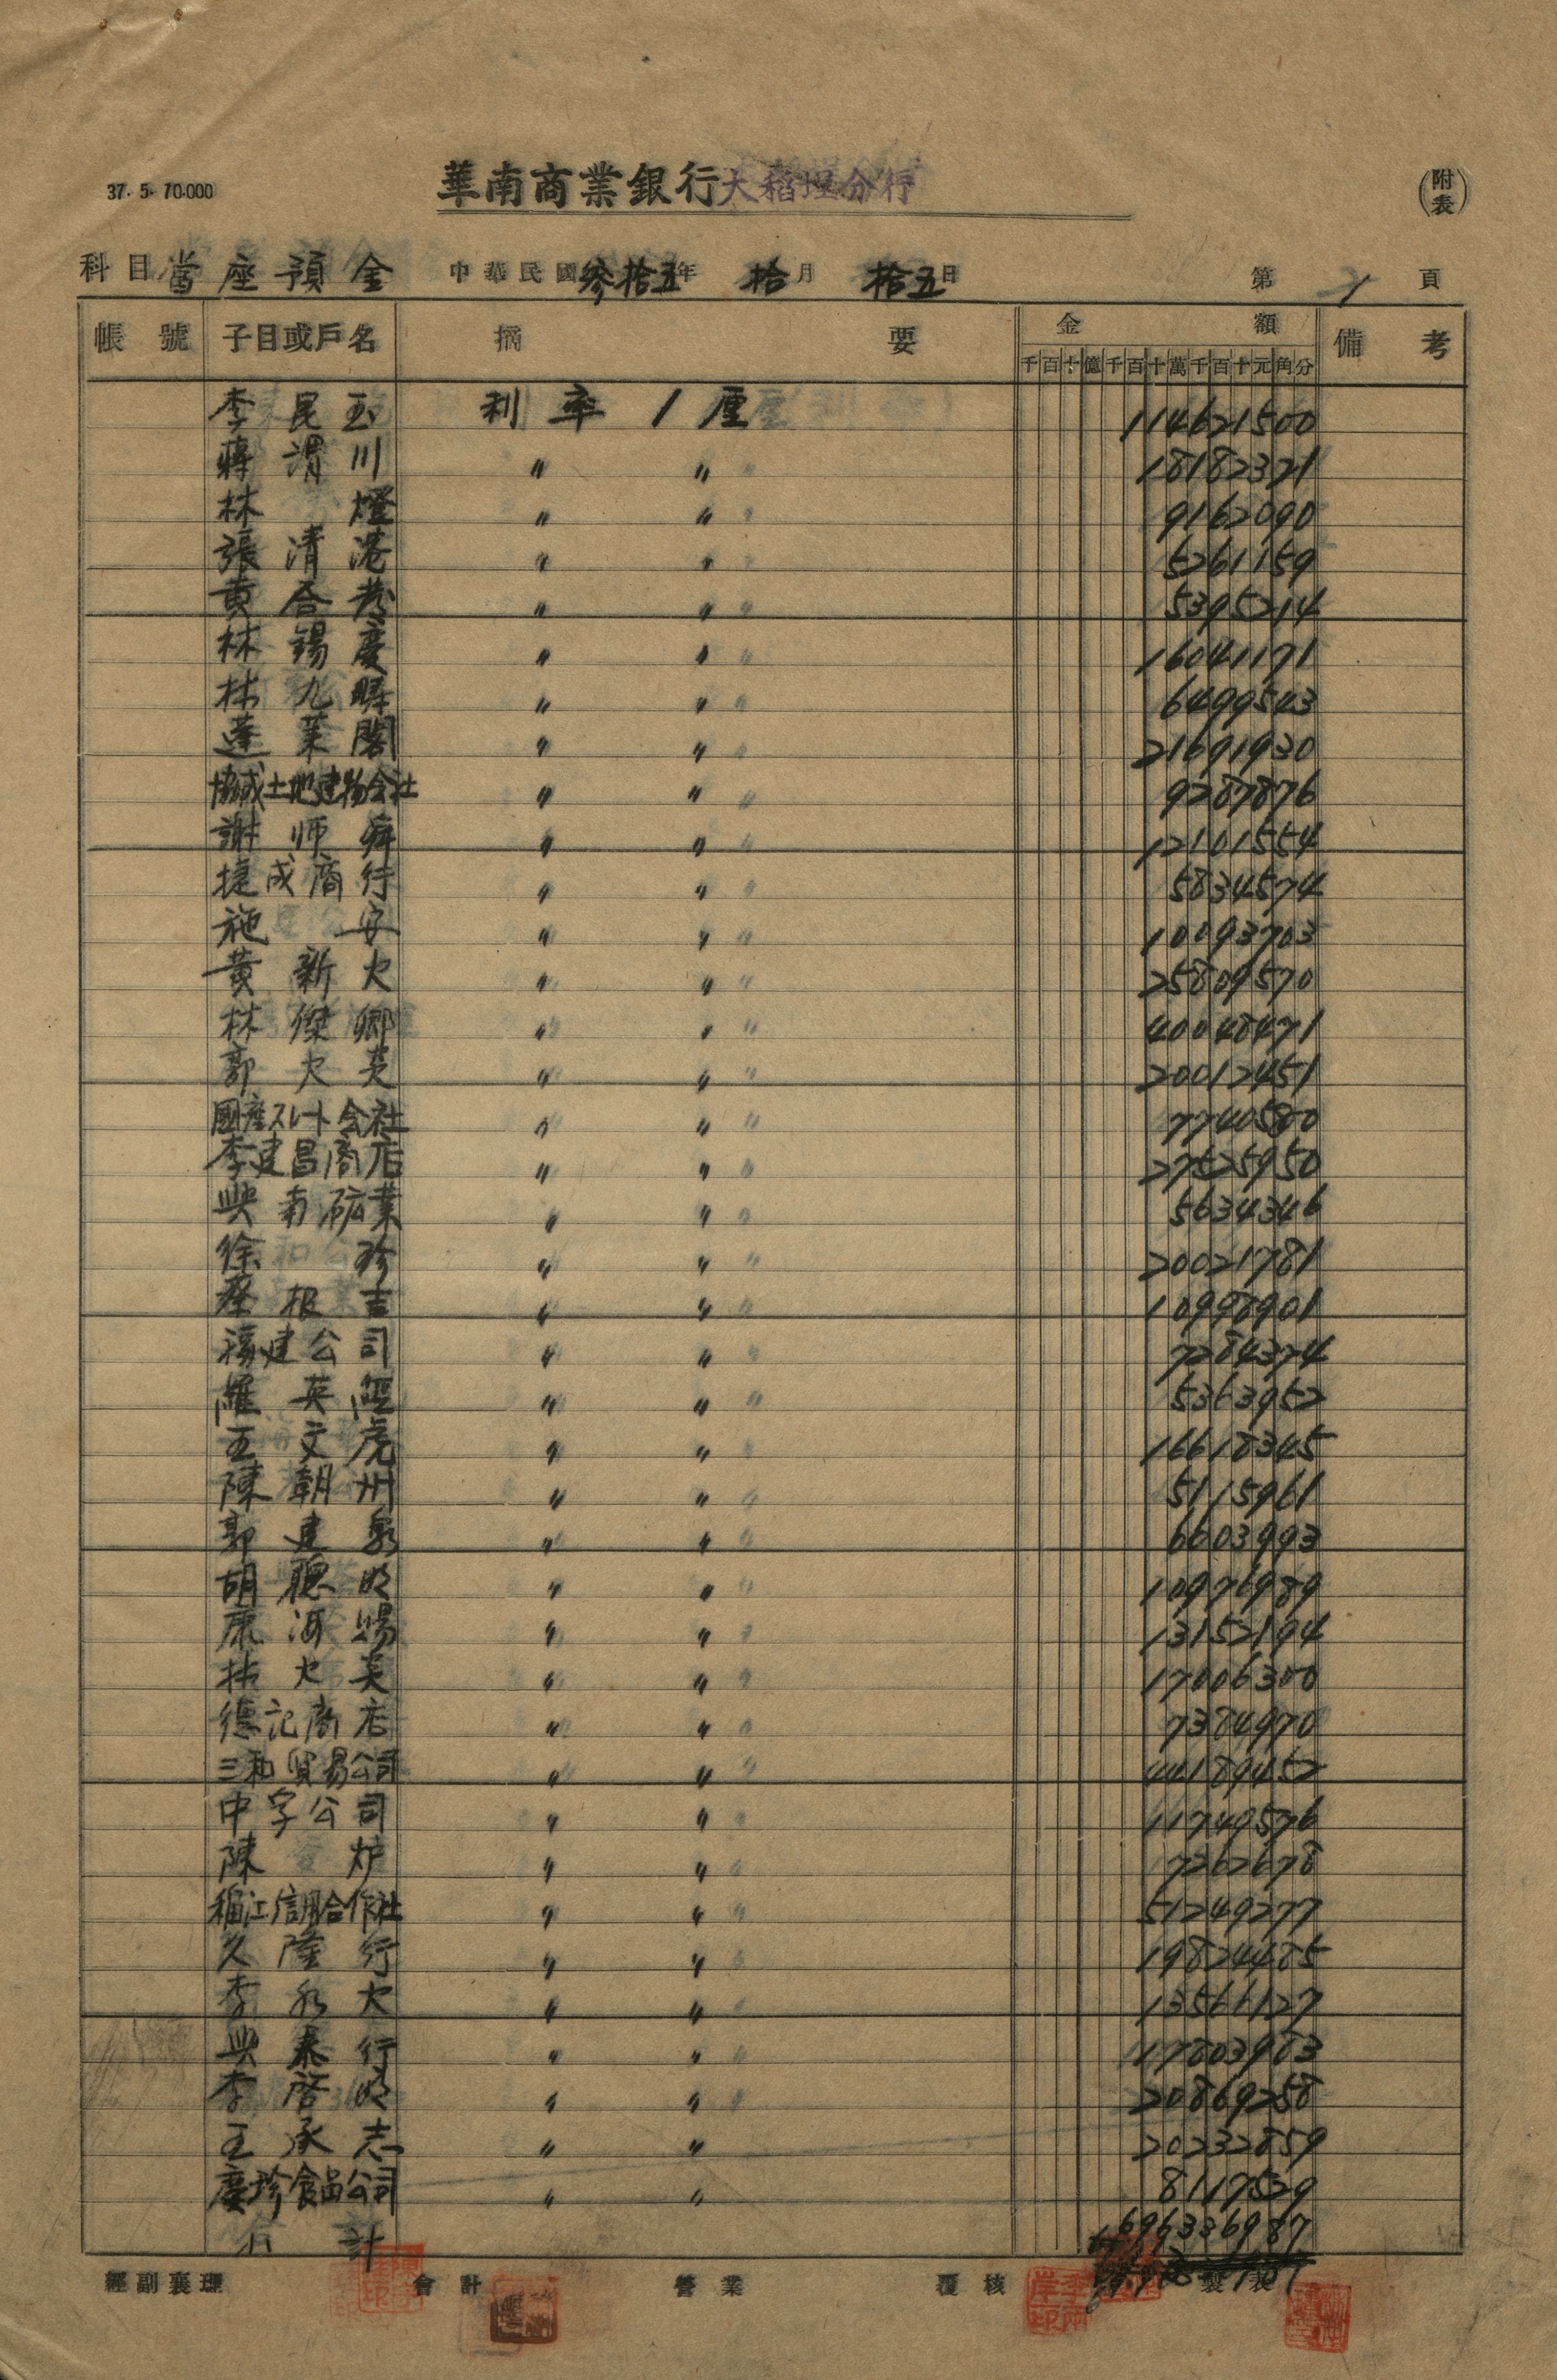 37. 5. 70.000
華南商業銀行大稻埕分行
(附表)
科目 當座預金 中華民國參拾五年 拾月 拾五日 第 1 頁
帳號 子目或戶名 摘要 金額 備考
千百十億千百十萬千百十元角分
李昆玉 利率1厘 114621500
蔣渭川 〃 〃 18182321
林燈 〃 〃 9162090
張清港 〃 〃 5261159
黃合發 〃 〃 5395214
林錫慶 〃 〃 16041171
林九 〃 〃 6499543
蓬萊閣 〃 〃 21691930
協成土地建物会社 〃 〃 9287876
謝师 〃 〃 12101554
捷成商行 〃 〃 5834574
施安 〃 〃 10093703
黃新火 〃 〃 25809570
林傑鄉 〃 〃 40048471
郭火英 〃 〃 20012451
國產スレート会社 〃 〃 7740580
李建昌商店 〃 〃 27525950
興南矿業 〃 〃 5634346
徐珍 〃 〃 20021781
蔡根吉 〃 〃 10998901
福建公司 〃 〃 7284374
羅英 〃 〃 5363952
王文虎 〃 〃 16618345
陳朝州 〃 〃 5115961
郭建泉 〃 〃 6603993
胡聰明 〃 〃 10976989
康海賜 〃 〃 13152194
林火英 〃 〃 17006300
德記商店 〃 〃 7384970
三和貿易公司 〃 〃 44189452
中孚公司 〃 〃 11749576
陳炉 〃 〃 7262678
稻江信用合作社 〃 〃 51249277
久隆行 〃 〃 19824485
李永火 〃 〃 13566127
興泰行 〃 〃 17803983
李啓明 〃 〃 20869258
王承志 〃 〃 20232859
慶珍食品公司 〃 〃 8117529
小計 696336987
經副襄理 會計 營業 覆核 製表